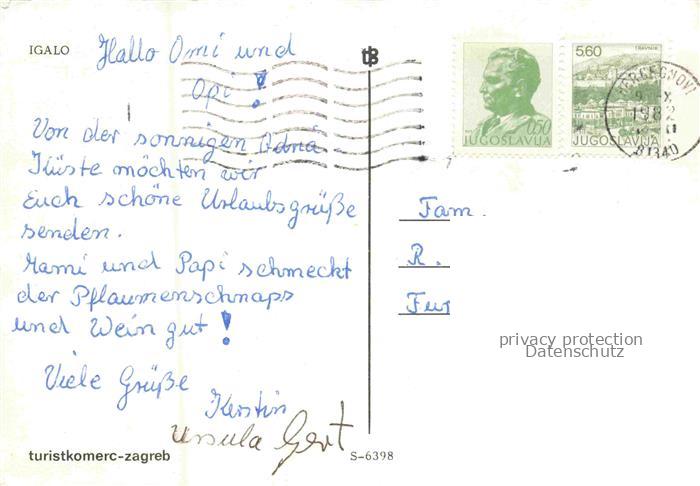 IGALO
Hallo Omi und
Opi!
Von der sonnigen Adria
Küste möchten wir
Euch schöne Urlaubsgrüße
senden.
Mami und Papi schmeckt
der Pflaumenschnaps
und Wein gut!
Viele Grüße
Kerstin
Ursula Gert
turistkomerc-zagreb
S-6398
tB
0,50
JUGOSLAVIJA
5,60
TRAVNIK
JUGOSLAVIJA
HERCEGNOVI
1982
81340
Fam.
R.
privacy protection
Datenschutz